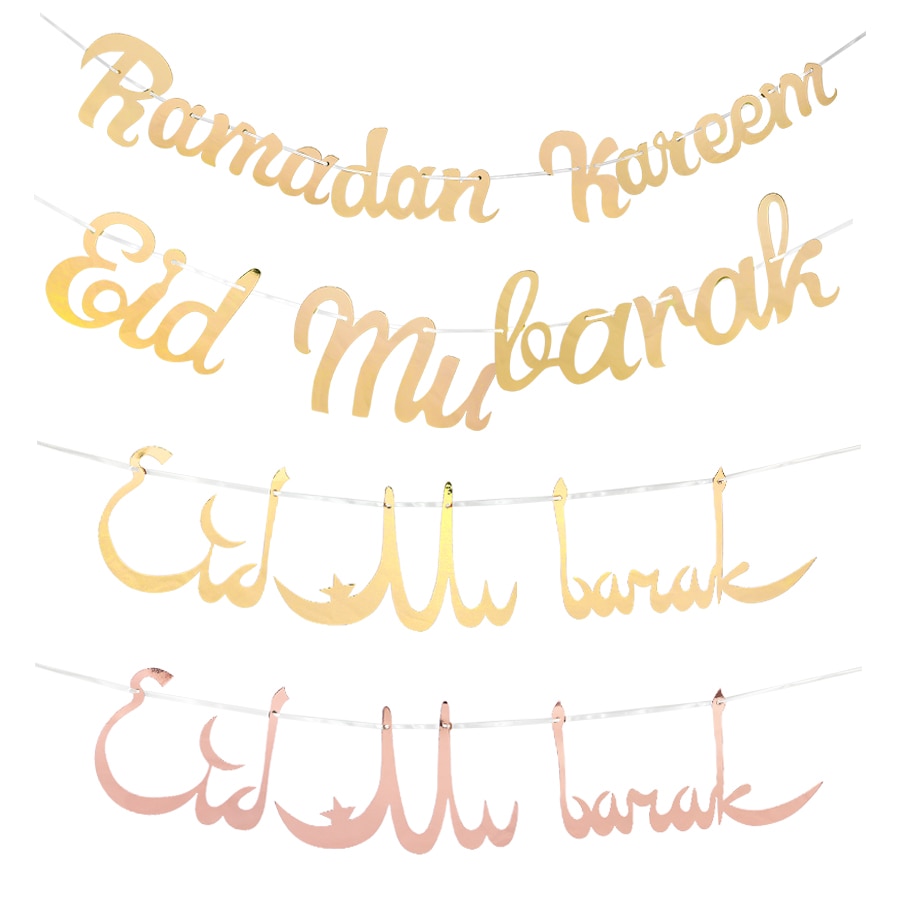 Ramadan Kareem
Eid Mubarak
Eid Mubarak
Eid Mubarak